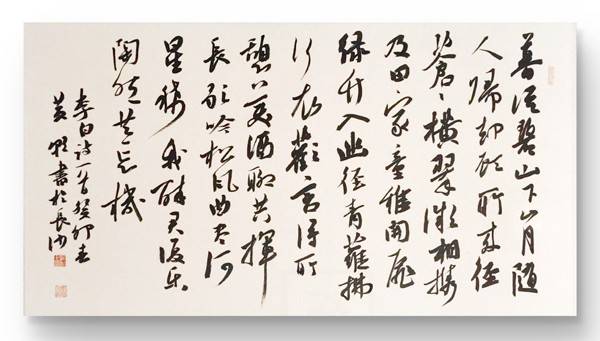 暮從碧山下山月隨
人歸却顧所來徑
蒼々橫翠微相携
及田家童稚開扉
綠竹入幽徑青蘿拂
行衣歡言得所
憩美酒聊共揮
長歌吟松風曲盡河
星稀我醉君復樂
陶然共忘機
李白詩一首癸卯春
書於長沙